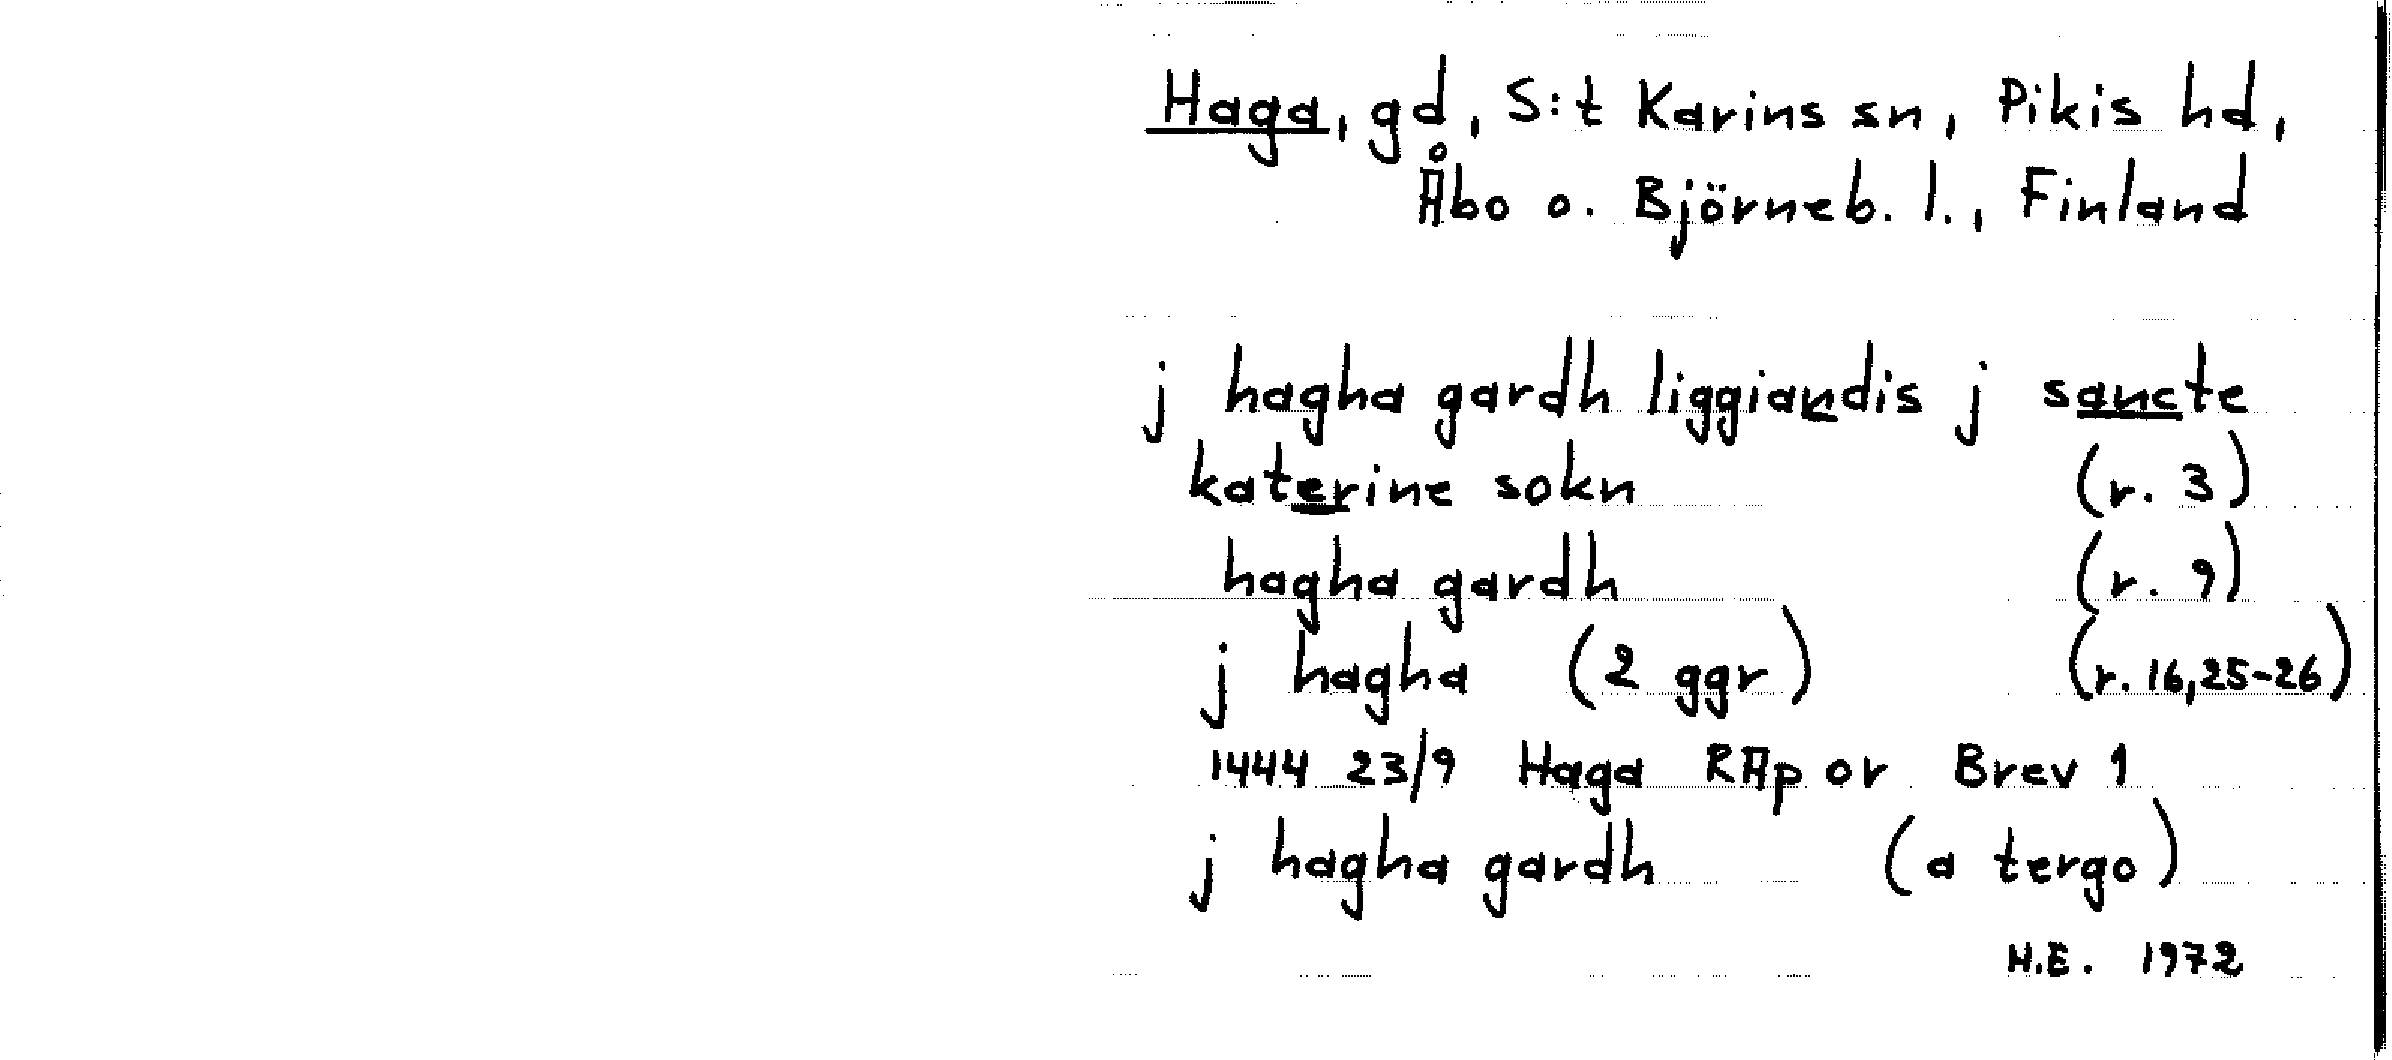 Haga, gd, S:t Karins sn, Pikis hd,
Åbo o. Björneb. l., Finland
j hagha gardh liggiandis j sancte
katerine sokn (r. 3)
hagha gardh (r. 9)
j hagha (2 ggr) (r. 16,25-26)
1444 23/9 Haga RAp or Brev 1
j hagha gardh (a tergo)
H.E. 1972